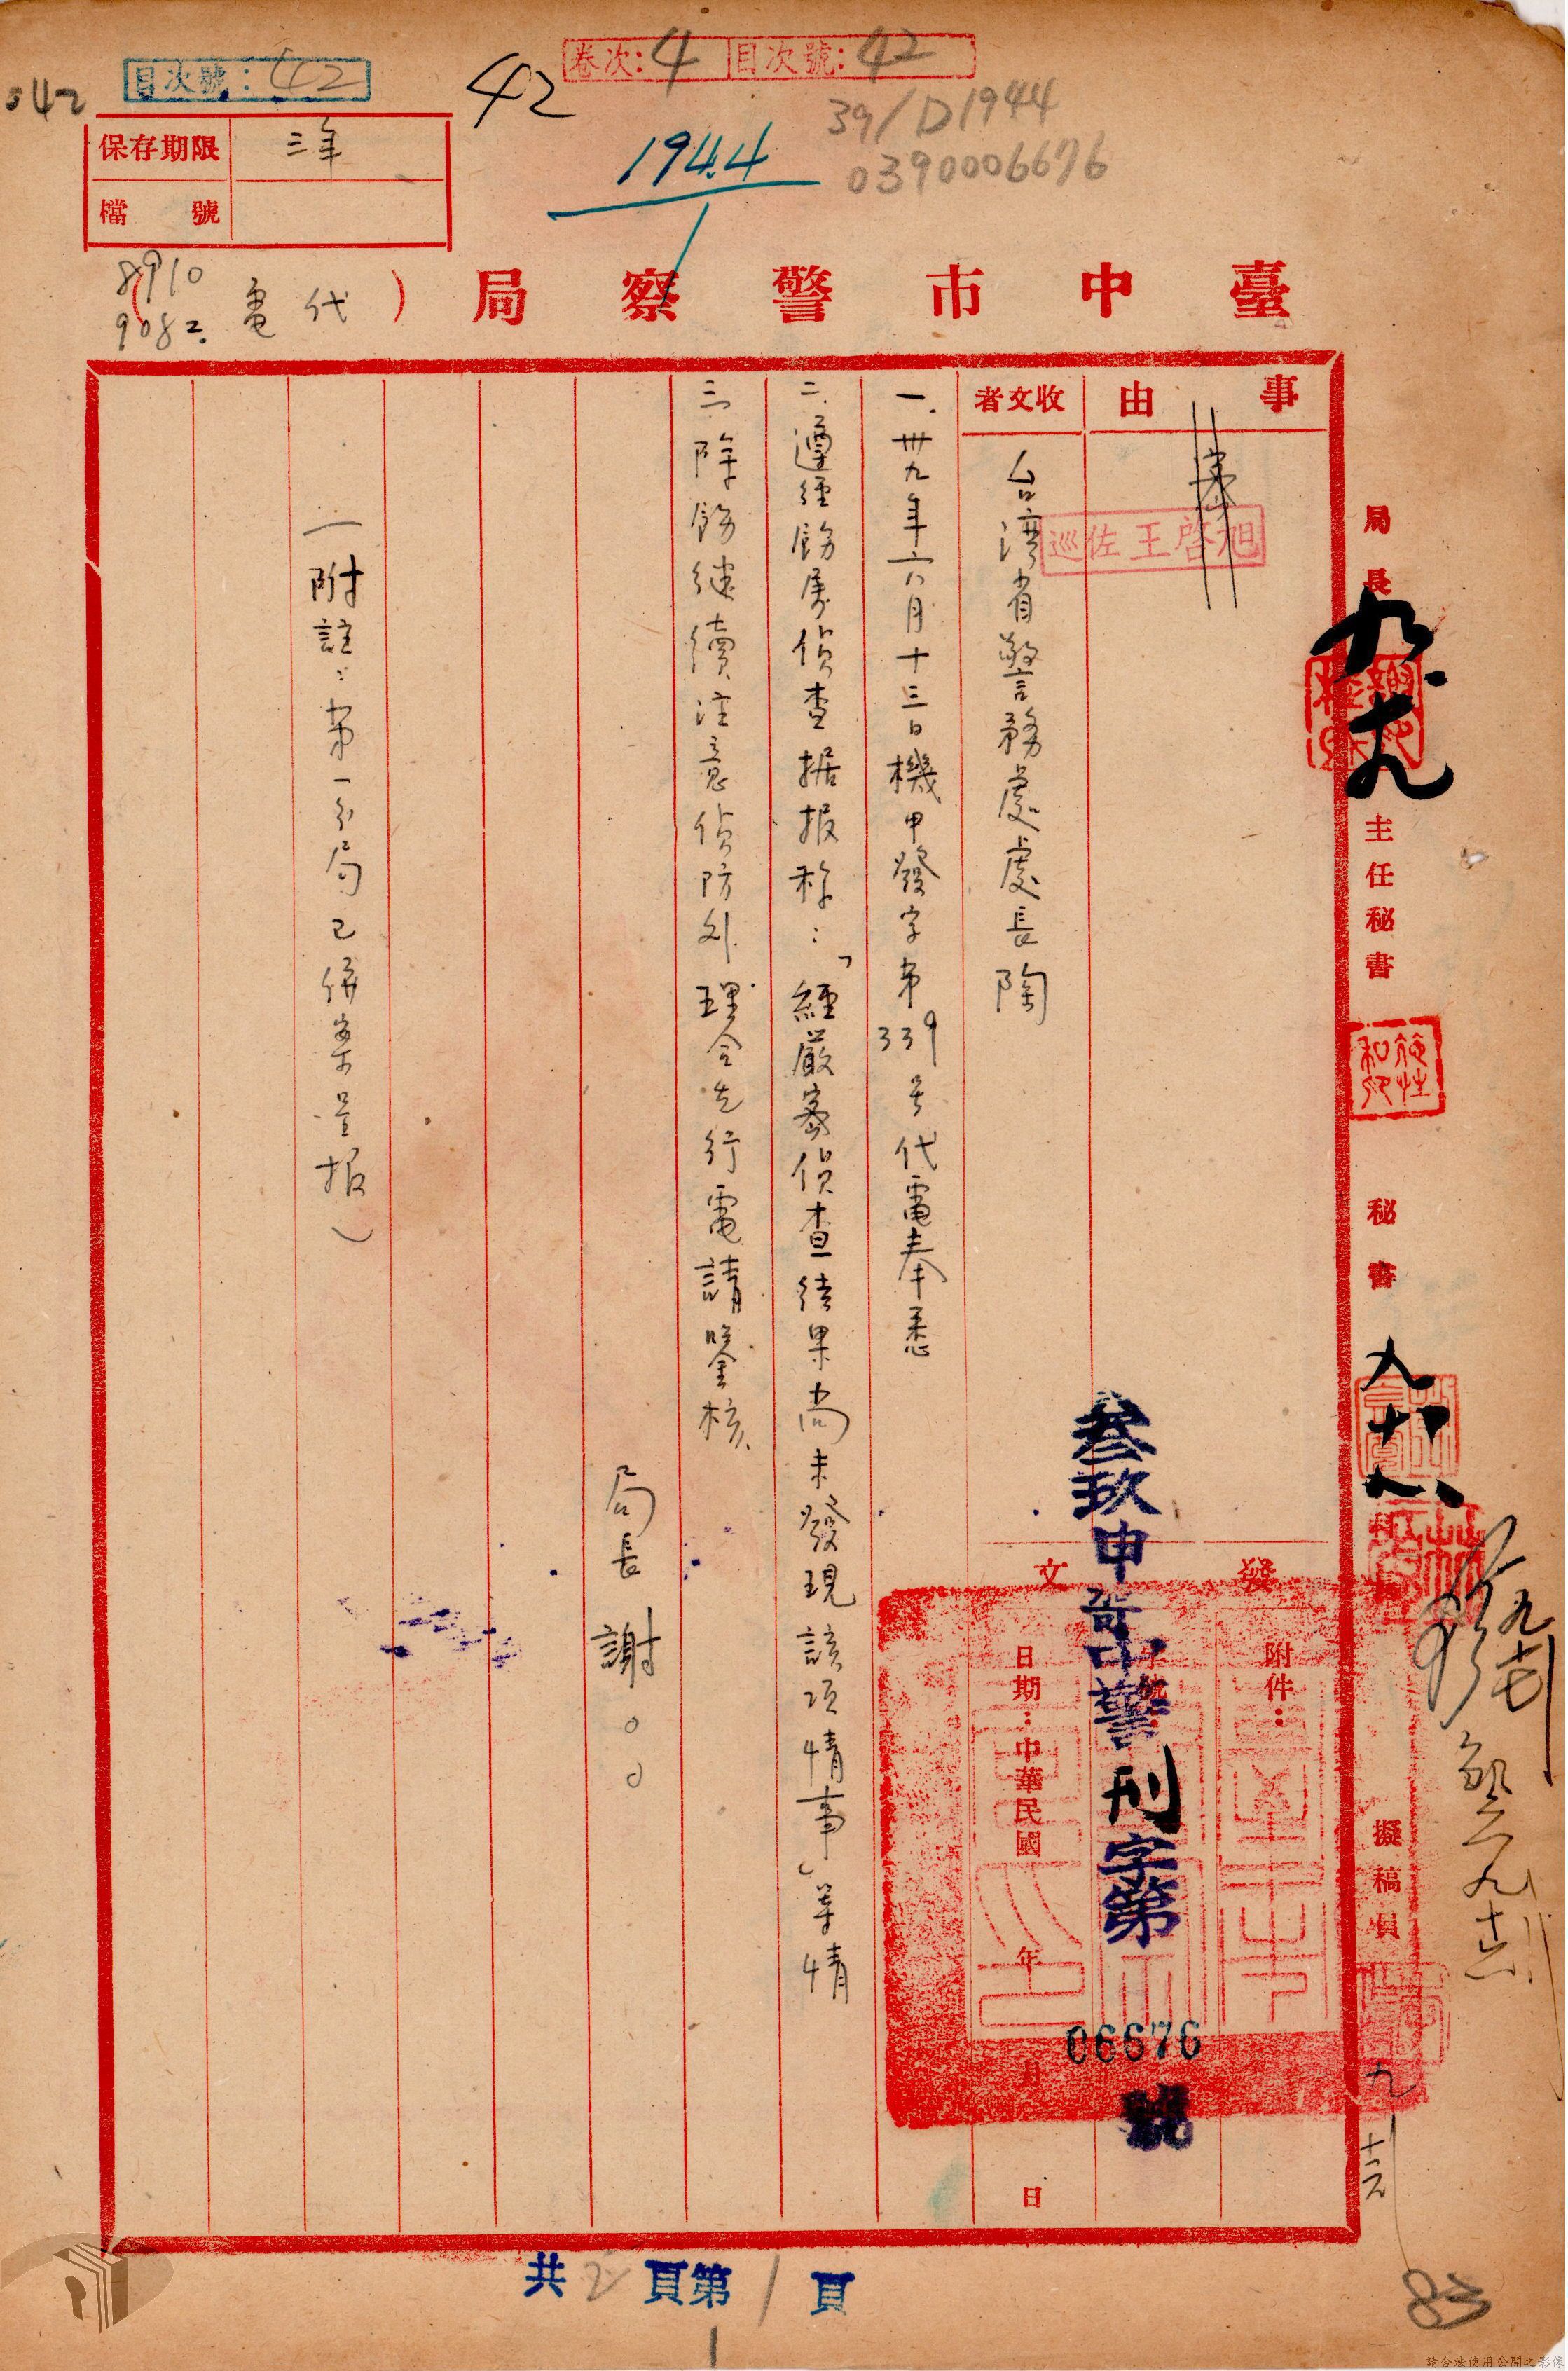 542
目次號：42
42
卷次：4 目次號：42
39/D1944
0390006676
1944
保存期限 三年
檔號
臺中市警察局（代電）
8910
9082.
事由
巡佐王啓旭
收文者
台湾省警務處處長陶
一、卅九年六八月十三日機甲發字第339号代電奉悉
二、遵經飭屬偵查据报称：「經嚴密偵查結果尚未發現該項情事」等情
三、除飭继續注意偵防外理合先行電請鑒核
局長謝○○
（附註：第一分局已併案呈报）
發文
附件：
日期：中華民國 年 月 日
叁玖申 中警刑字第06676號
局長
主任秘書
秘書
九
擬稿員
共2頁第1頁
1
83
請合法使用公開之影像